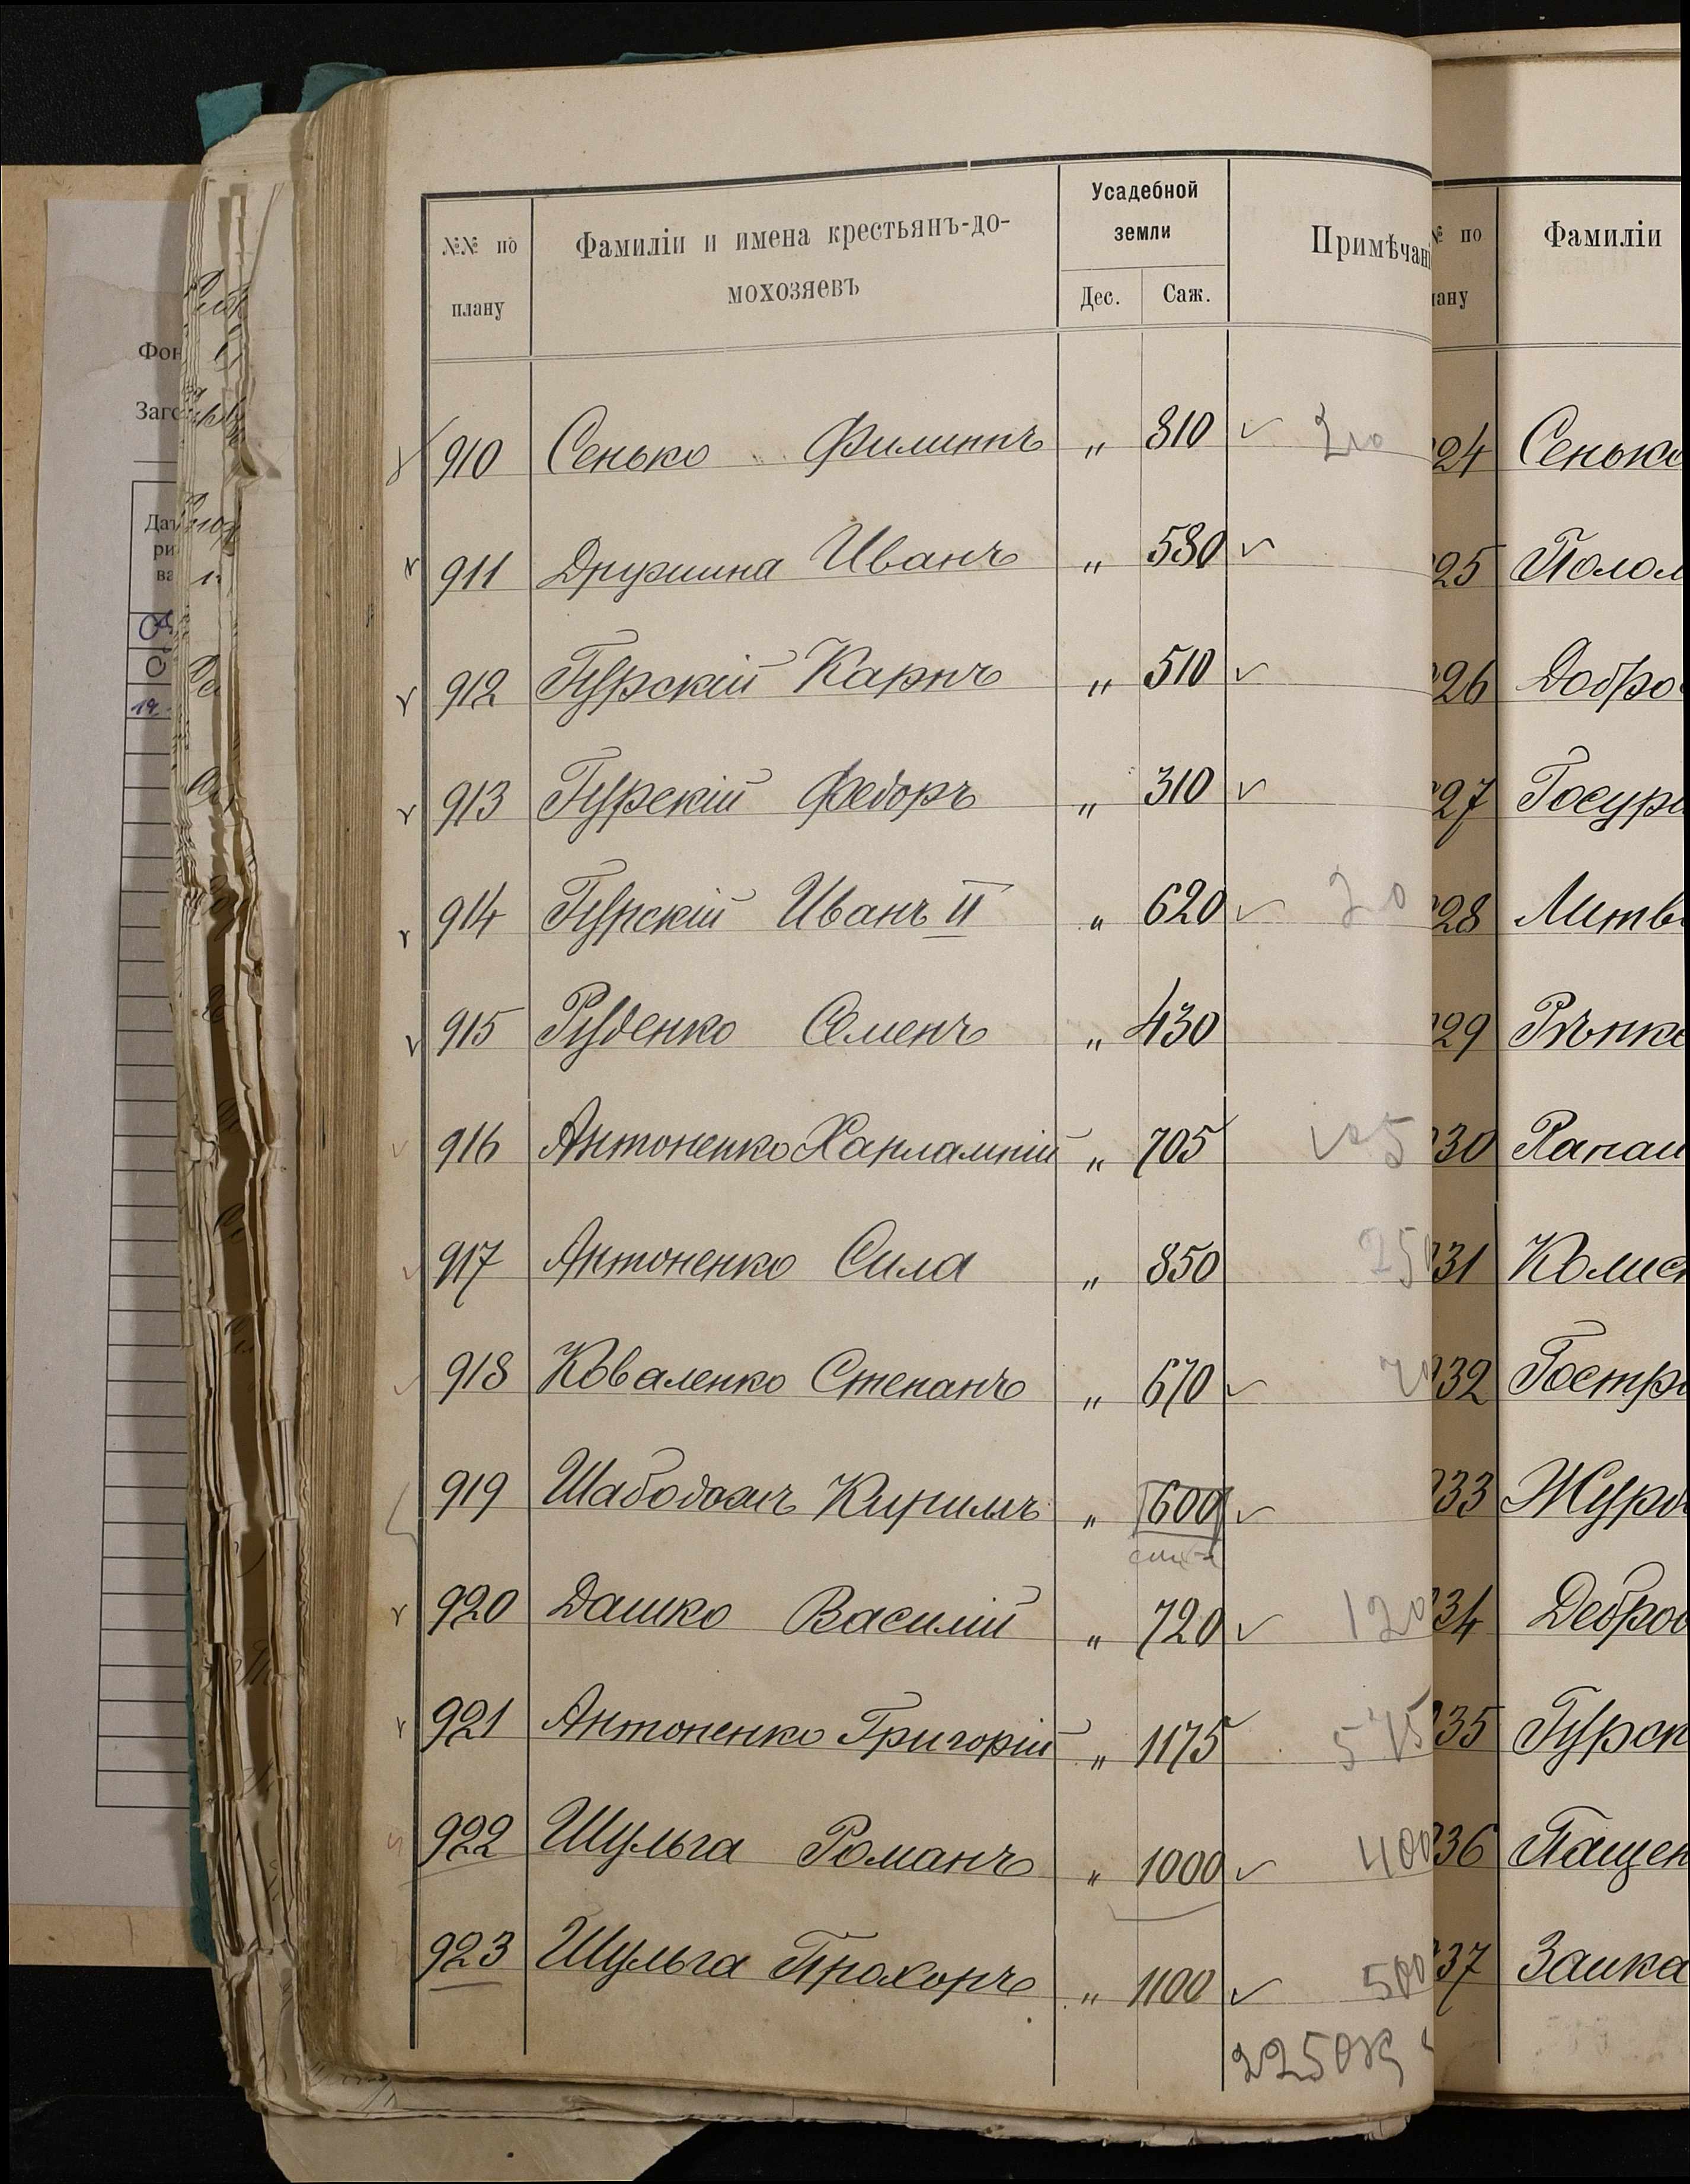 №№ по плану
Фамиліи и имена крестьянъ-домохозяевъ
Усадебной земли
Дес. Саж.
Примѣчані
910 Сенько Филиппъ " 810 210
911 Дружина Иванъ " 580
912 Гурскій Карпъ " 510
913 Гурскій Федоръ " 310
914 Гурскій Иванъ II " 620 20
915 Руденко Семенъ " 430
916 Антоненко Харлампій " 705
917 Антоненко Сила " 850 250
918 Коваленко Степанъ " 670
919 Кирилъ " 600
920 Дашко Василій " 720 120
921 Антоненко Григорій " 1175 575
922 Шульга Романъ " 1000 400
923 Шульга Прохоръ " 1100 500
№ по лану
Фамиліи
24 Сенько
25 Полом
26 Добро
27 Госур
28 Литв
29 Рѣпк
30
31 Колис
32 Гостр
33 Журо
34 Дебров
35 Гурск
36 Пащен
37 Заика
Фон
Заго
Дат
ри
ва